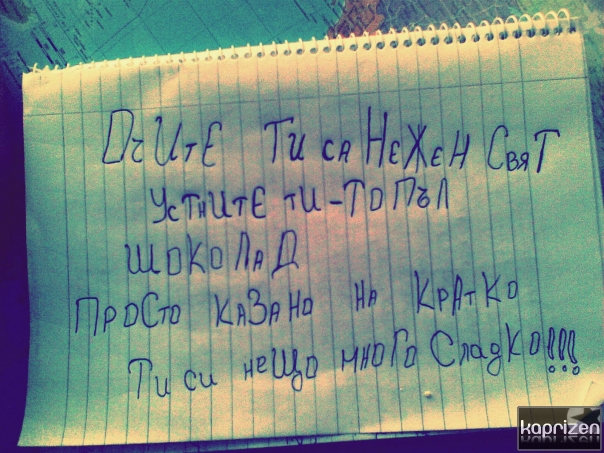 ОчИтЕ ТИ са НЕЖЕН СвяТ
УсТнИтЕ тИ-ТОПЪЛ
ШОКОЛаД
ПРОСТО КаЗаНО На КРАтКО
Ти си неЩо мноГо СладКО!!!
kaprizen